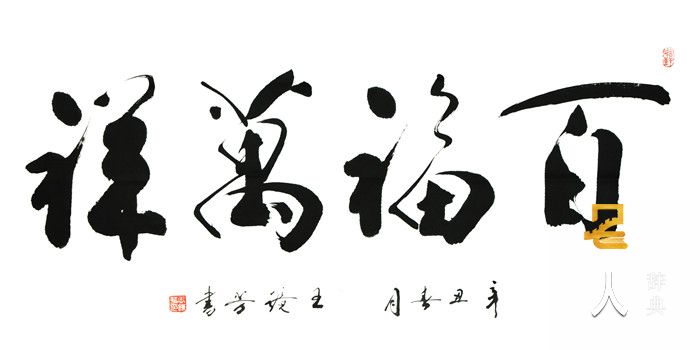 百福萬祥
辛丑春月 王 書
人
辞典